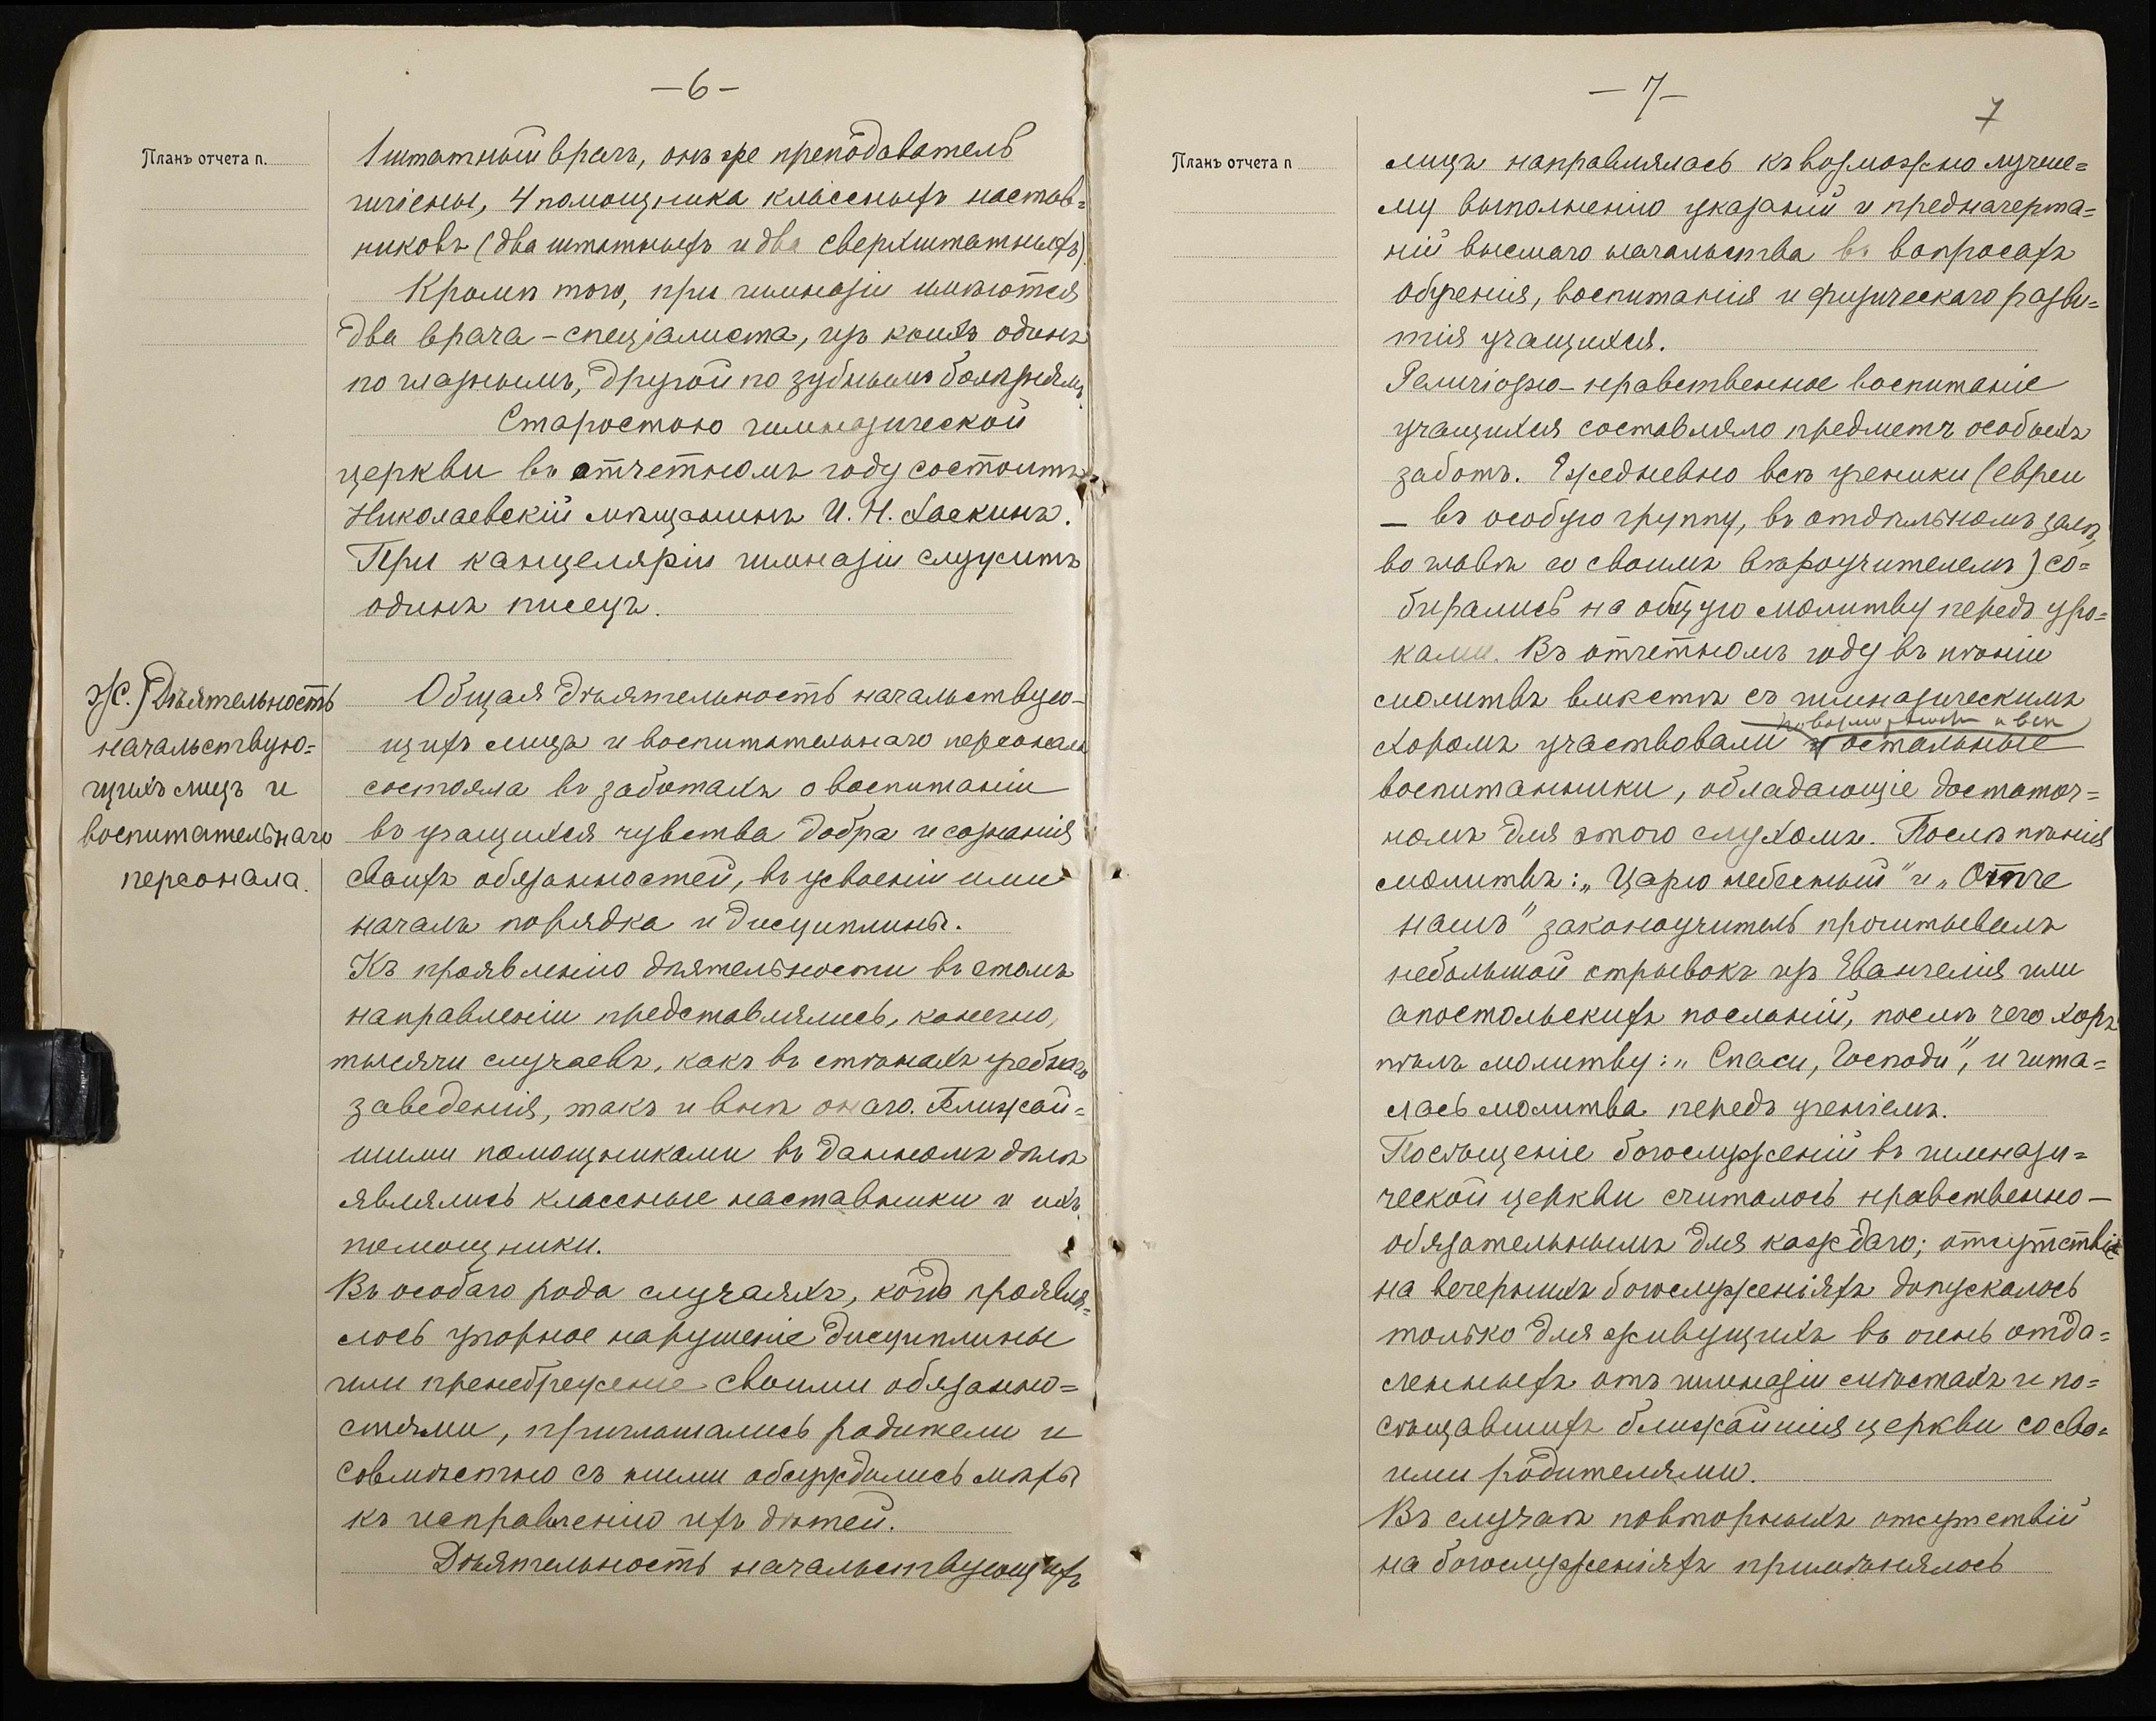 —6—
Планъ отчета п.
1 штатный врачъ, онъ же преподаватель
гигіены, 4 помощника классныхъ настав=
никовъ (два штатныхъ и два сверхштатныхъ).
Кромѣ того, при гимназіи имѣются
два врача-спеціалиста, изъ коихъ одинъ
по глазнымъ, другой по зубнымъ болѣзнямъ.
Старостою гимназической
церкви въ отчетномъ году состоитъ
Николаевскій мѣщанинъ И. Н. Хаскинъ.
При канцеляріи гимназіи служитъ
одинъ писецъ.
Ж.) Дѣятельность
начальствую=
щихъ лицъ и
воспитательнаго
персонала.
Общая дѣятельность начальствую-
щихъ лицъ и воспитательнаго персонала
состояла въ заботахъ о воспитаніи
въ учащихся чувства добра и сознанія
своихъ обязанностей, въ усвоеніи ими
началъ порядка и дисциплины.
Къ проявленію дѣятельности въ этомъ
направленіи представлялись, конечно,
тысячи случаевъ, какъ въ стѣнахъ учебнаго
заведенія, такъ и внѣ онаго. Ближай=
шими помощниками въ данномъ дѣлѣ
являлись классные наставники и ихъ
помощники.
Въ особаго рода случаяхъ, когда проявля=
лось упорное нарушеніе дисциплины
или пренебреженіе своими обязанно=
стями, приглашались родители и
совмѣстно съ ними обсуждались мѣры
къ исправленію ихъ дѣтей.
Дѣятельность начальствующихъ
—7—
7
Планъ отчета п
лицъ направлялась къ возможно лучше=
му выполненію указаній и предначерта=
ній высшаго начальства въ вопросахъ
обученія, воспитанія и физическаго разви=
тія учащихся.
Религіозно-нравственное воспитаніе
учащихся составляло предметъ особыхъ
заботъ. Ежедневно всѣ ученики (евреи
— въ особую группу, въ отдѣльномъ залѣ,
во главѣ со своимъ вѣроучителемъ) со=
бирались на общую молитву передъ уро=
ками. Въ отчетномъ году въ пѣніи
молитвъ вмѣстѣ съ гимназическимъ
по возможности и всѣ
хоромъ участвовали и остальные
воспитанники, обладающіе достаточ=
номъ для этого слухомъ. Послѣ пѣнія
молитвъ: „Царю небесный" и „Отче
нашъ" законоучитель прочитывалъ
небольшой отрывокъ изъ Евангелія или
апостольскихъ посланій, послѣ чего хоръ
пѣлъ молитву: „Спаси, Господи", и чита=
лась молитва передъ ученіемъ.
Посѣщеніе богослуженій въ гимнази=
ческой церкви считалось нравственно—
обязательнымъ для каждаго; отсутствіе
на вечернихъ богослуженіяхъ допускалось
только для живущихъ въ очень отда=
ленныхъ отъ гимназіи мѣстахъ и по=
сѣщавшихъ ближайшія церкви со сво=
ими родителями.
Въ случаѣ повторныхъ отсутствій
на богослуженіяхъ примѣнялось